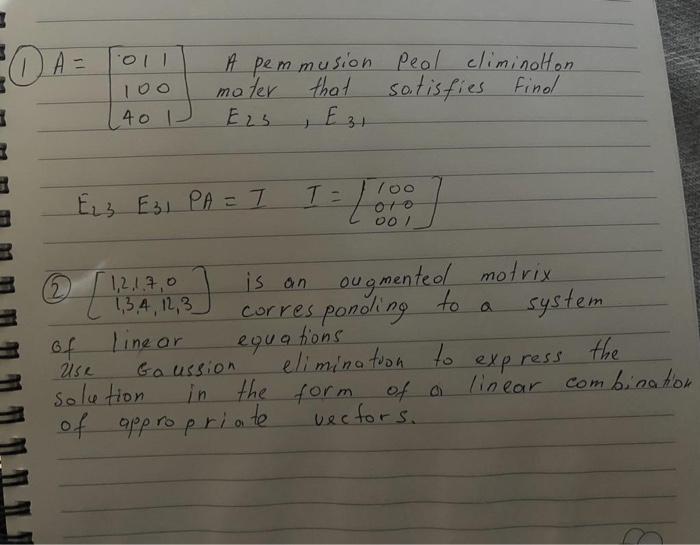 ① A = [ 0 1 1 A pemmusion Peol climinotton
1 0 0 moter that satisfies Find
4 0 1 ] E23 , E31
E23 E31 PA = I I = [ 1 0 0
0 1 0
0 0 1 ]
② [ 1,2,1,7,0 is an augmented motrix
1,3,4,12,3 ] corresponding to a system
of linear equations
Use Gaussion elimination to express the
solution in the form of a linear combination
of appropriate vectors.